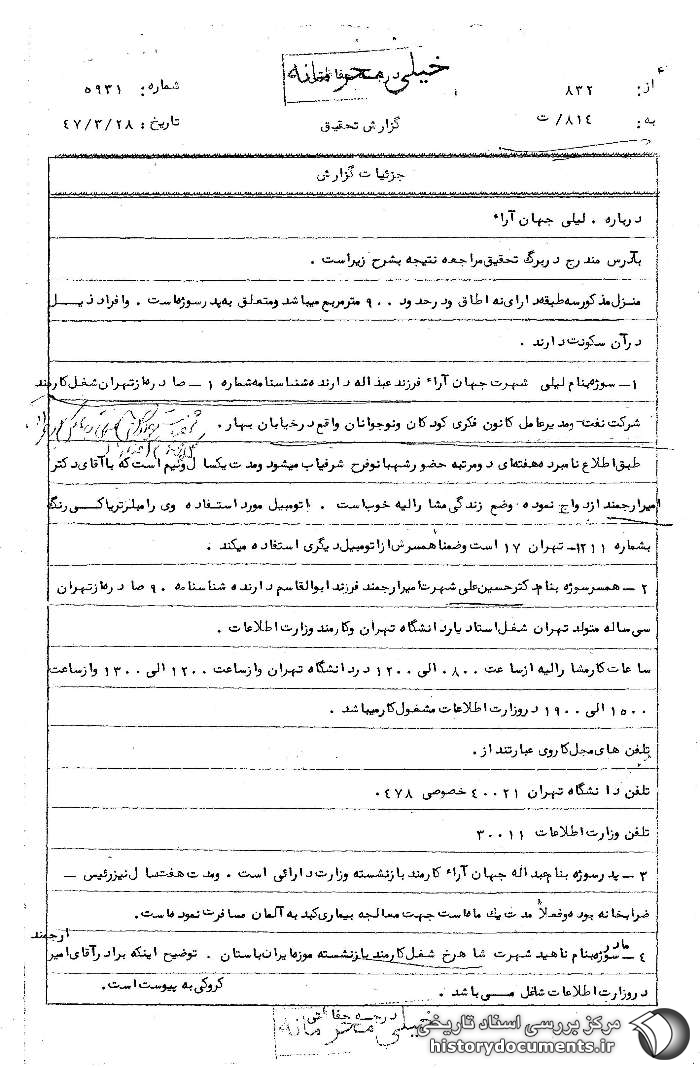 خیلی محرمانه
از: ۸۳۲
شماره: ۵۹۳۱
به: ۸۱۴/ ت
گزارش تحقیق
تاریخ: ۴۷/۳/۲۸
جزئیات گزارش
درباره . لیلی جهان آراء
بآدرس مندرج دربرگ تحقیق مراجعه نتیجه بشرح زیراست .
منزل مذکور سه طبقه دارای نه اطاق ودرحدود ۹۰۰ مترمربع میباشد ومتعلق به پدر سوژه است . وافراد ذیل
درآن سکونت دارند .
۱ – سوژه بنام لیلی شهرت جهان آراء فرزند عبداله دارنده شناسنامه شماره ۱ – صادره از تهران شغل کارمند
شرکت نفت – ومدیرعامل کانون فکری کودکان ونوجوانان واقع درخیابان بهار .
طبق اطلاع نامبرده هفته ای دومرتبه حضور شهبانو فرح شرفیاب میشود ومدت یکسال ونیم است که باآقای دکتر
امیرارجمند ازدواج نموده وضع زندگی مشارالیه خوب است . اتومبیل مورد استفاده وی رامبلر تریاکی رنگ
بشماره ۱۲۱۱– تهران ۱۷ است وضمنا همسرش ازاتومبیل دیگری استفاده میکند .
۲ – همسر سوژه بنام دکتر حسین علی شهرت امیرارجمند فرزند ابوالقاسم دارنده شناسنامه ۹۰ صادره از تهران
سی ساله متولد تهران شغل استادیار دانشگاه تهران وکارمند وزارت اطلاعات .
ساعات کار مشارالیه ازساعت ۰۸۰۰ الی ۱۲۰۰ دردانشگاه تهران وازساعت ۱۲۰۰ الی ۱۳۰۰ وازساعت
۱۵۰۰ الی ۱۹۰۰ دروزارت اطلاعات مشغول کار میباشد .
تلفن های محل کار وی عبارتند از .
تلفن دانشگاه تهران ۴۰۰۲۱ خصوصی ۰۴۷۸
تلفن وزارت اطلاعات ۳۰۰۱۱
۳ – پدر سوژه بنام عبداله جهان آراء کارمند بازنشسته وزارت دارائی است . ومدت هفت سال نیز رئیس –
ضرابخانه بوده وفعلاً مدت یک ماه است جهت معالجه بیماری کبد به آلمان مسافرت نموده است .
۴ – مادر سوژه بنام ناهید شهرت شاهرخ شغل کارمند بازنشسته موزه ایران باستان . توضیح اینکه برادر آقای امیر ارجمند
دروزارت اطلاعات شاغل می باشد . کروکی به پیوست است.
خیلی محرمانه
مرکز بررسی اسناد تاریخی
historydocuments.ir